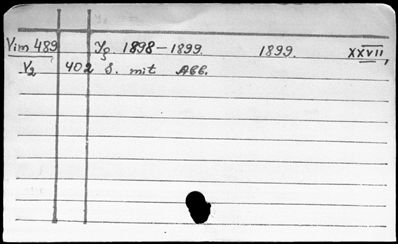 Vim 489 Jg. 1898-1899. 1899. XXVII,
V2 402 S. mit Abb.